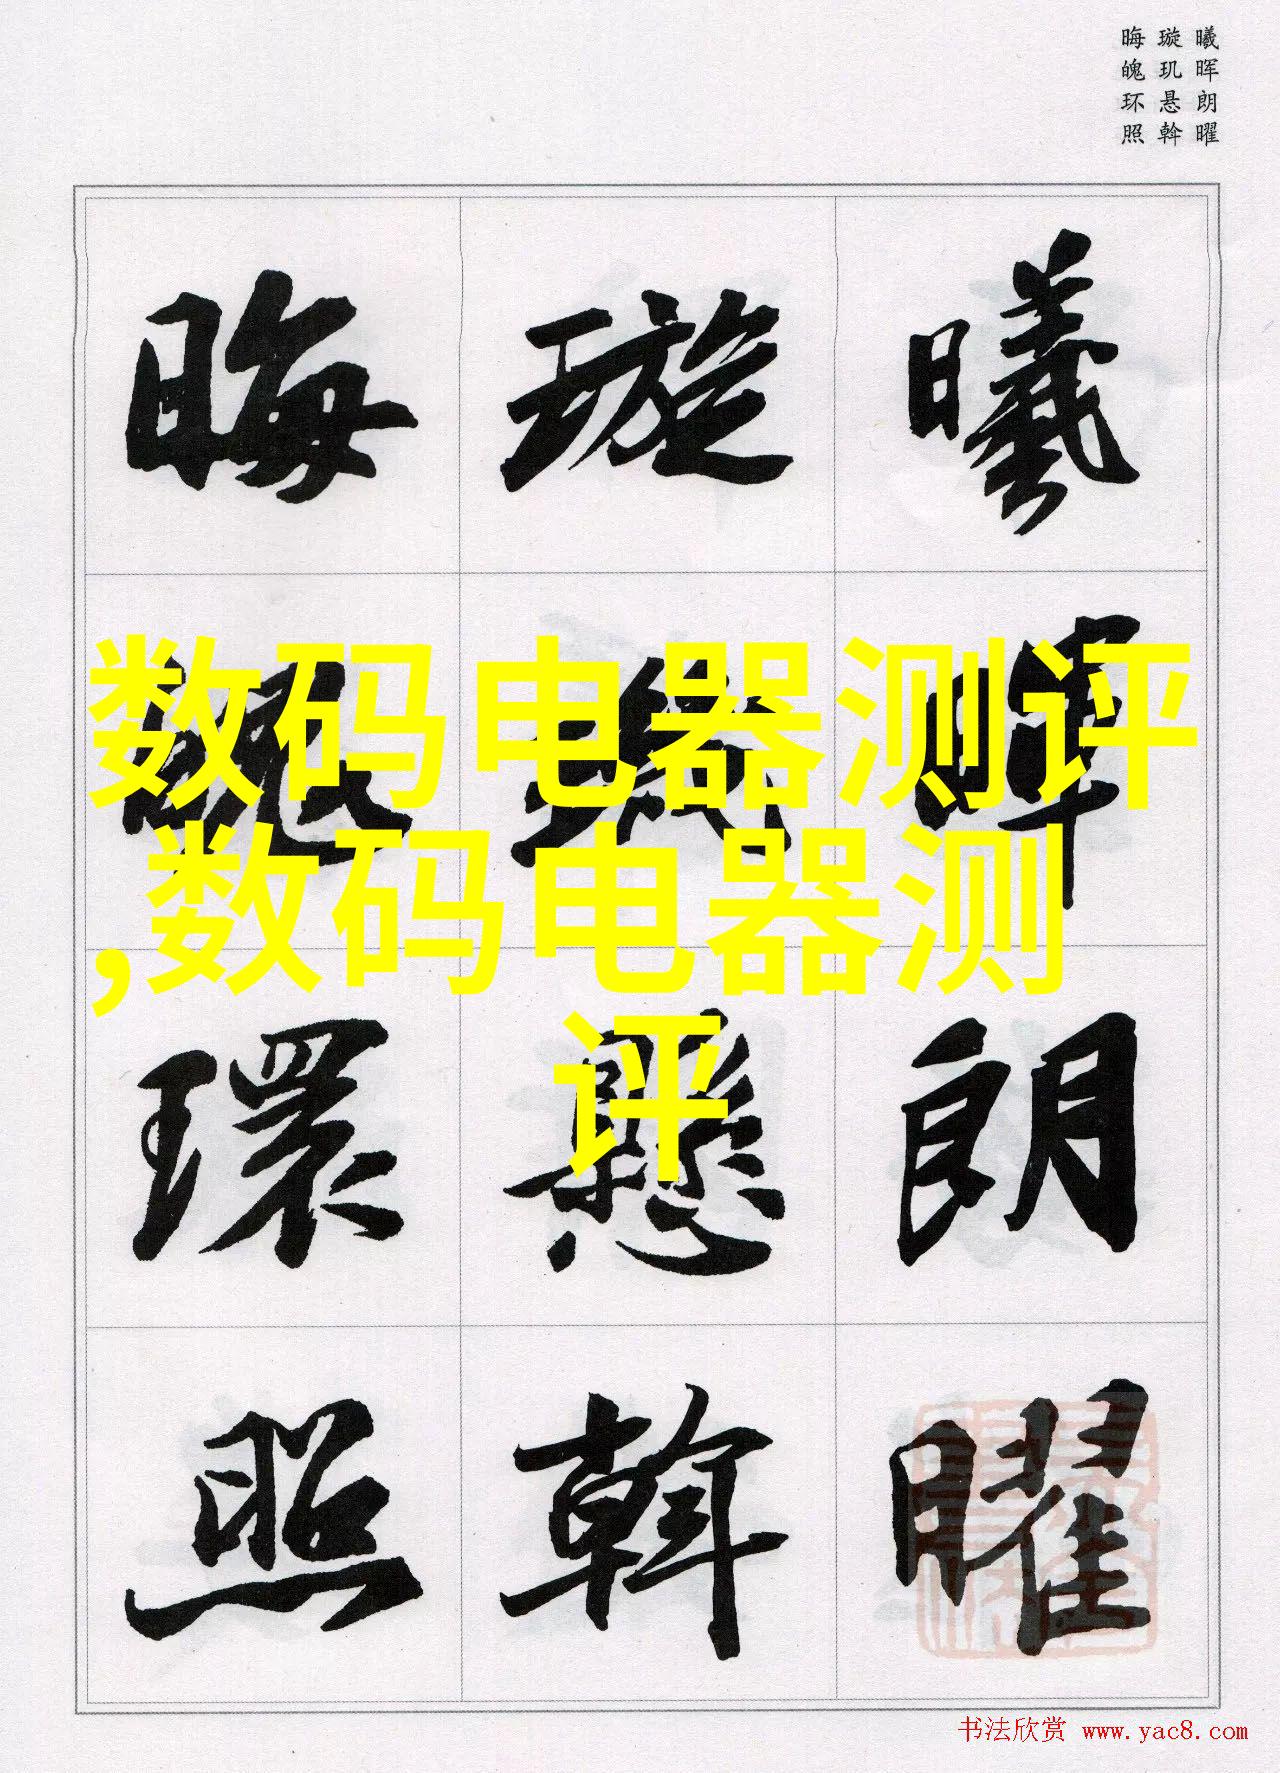 曦晖朗曜
璇玑悬斡
晦魄环照
曦
晖
朗
曜
璇
玑
懸
斡
晦
魄
環
照
数码电器测评
,数码电器测
评
书法欣赏 www.yac8.com